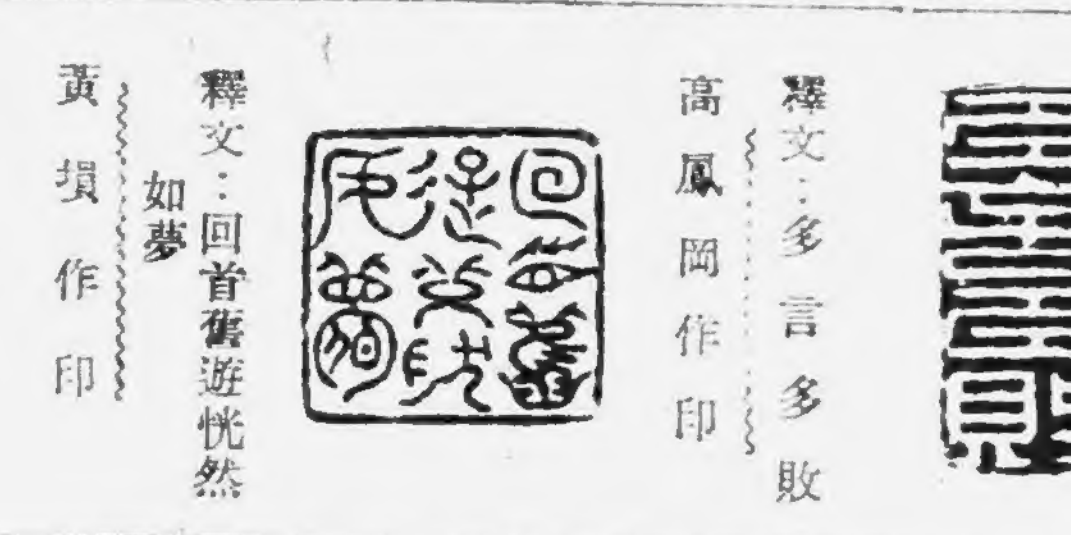 釋文：多言多敗
高鳳岡作印
釋文：回首舊遊恍然
如夢
黃塤作印